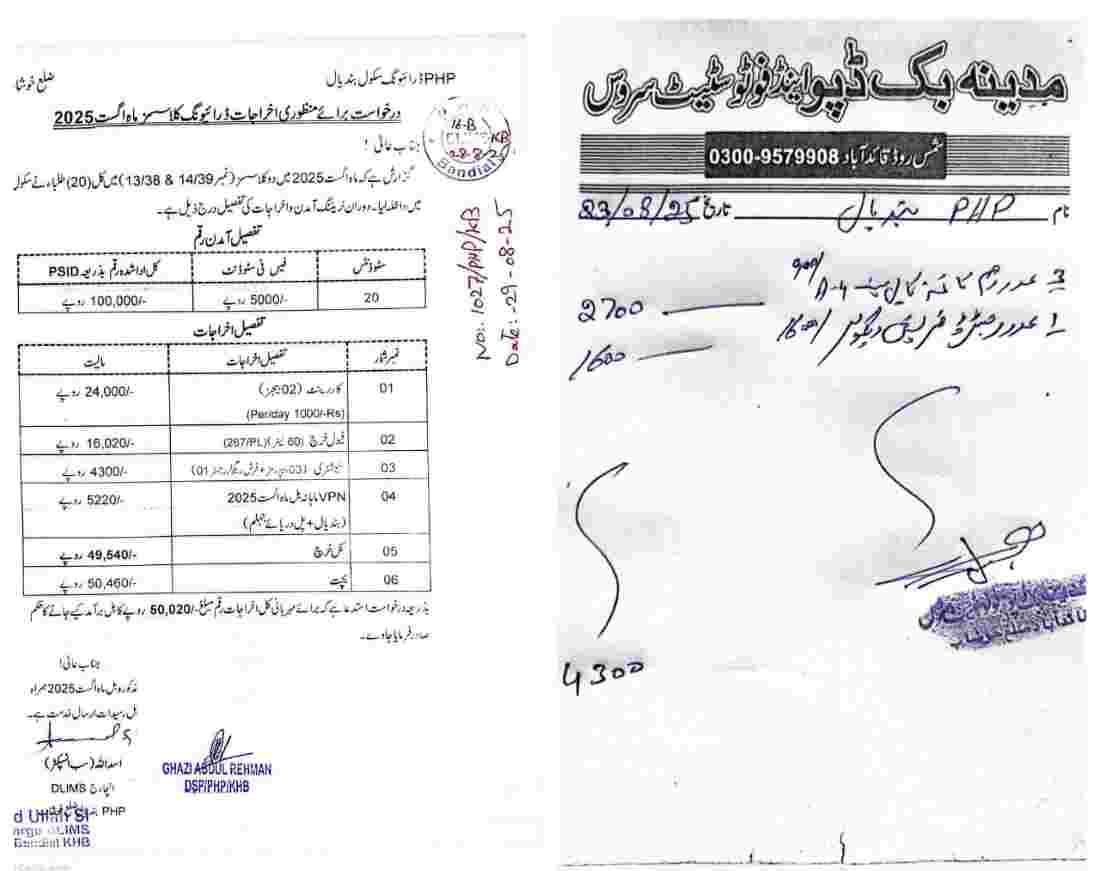 PHP ڈرائیونگ سکول بندیال
ضلع خوشا
درخواست برائے منظوری اخراجات ڈرائیونگ کلاسسز ماہ اگست 2025
جناب عالی !
گزارش ہے کہ ماہ اگست 2025 میں دو کلاسسز (نمبر 14/39 & 13/38) میں کل (20) طلباء نے سکول
میں داخلہ لیا۔ دوران ٹریننگ آمدن و اخراجات کی تفصیل درج ذیل ہے۔
تفصیل آمدن رقم
سٹوڈنٹس فیس فی سٹوڈنٹ کل ادا شدہ رقم بذریعہ PSID
20 5000/- روپے 100,000/- روپے
تفصیل اخراجات
نمبر شمار تفصیل اخراجات مالیت
01 کار رینٹ (02 بیجز) 24,000/- روپے
(Per/day 1000/-Rs)
02 فیول خرچ (60 لیٹر)(267/PL) 16,020/- روپے
03 4300/- روپے
04 VPN ماہانہ بل ماہ اگست 2025 5220/- روپے
(بندیال + پل دریائے جہلم)
05 کل خرچ 49,540/- روپے
06 بچت 50,460/- روپے
بذریعہ درخواست استدعا ہے کہ برائے مہربانی کل اخراجات رقم مبلغ 50,020/- روپے کا بل برآمد کیے جانے کا حکم
صادر فرمایا جاوے۔
جناب عالی!
مذکورہ بل ماہ اگست 2025 ہمراہ
بل رسیدات ارسال خدمت ہے۔
اسد اللہ (سب انسپکٹر)
انچارج DLIMS
PHP
DLIMS
KHB
GHAZI ABDUL REHMAN
DSP/PHP/KHB
16-B
KB
28-8-25
Bandial
NO:. 1027/PHP/KB
Date:-29-08-25
مدینہ بک ڈپو اینڈ فوٹو سٹیٹ سروس
شمس روڈ قائد آباد 0300-9579908
نام PHP بندیال تاریخ 23/08/25
3 عدد رم A-4 900/ 2700
1 عدد رجسٹر 1600/ 1600
4300